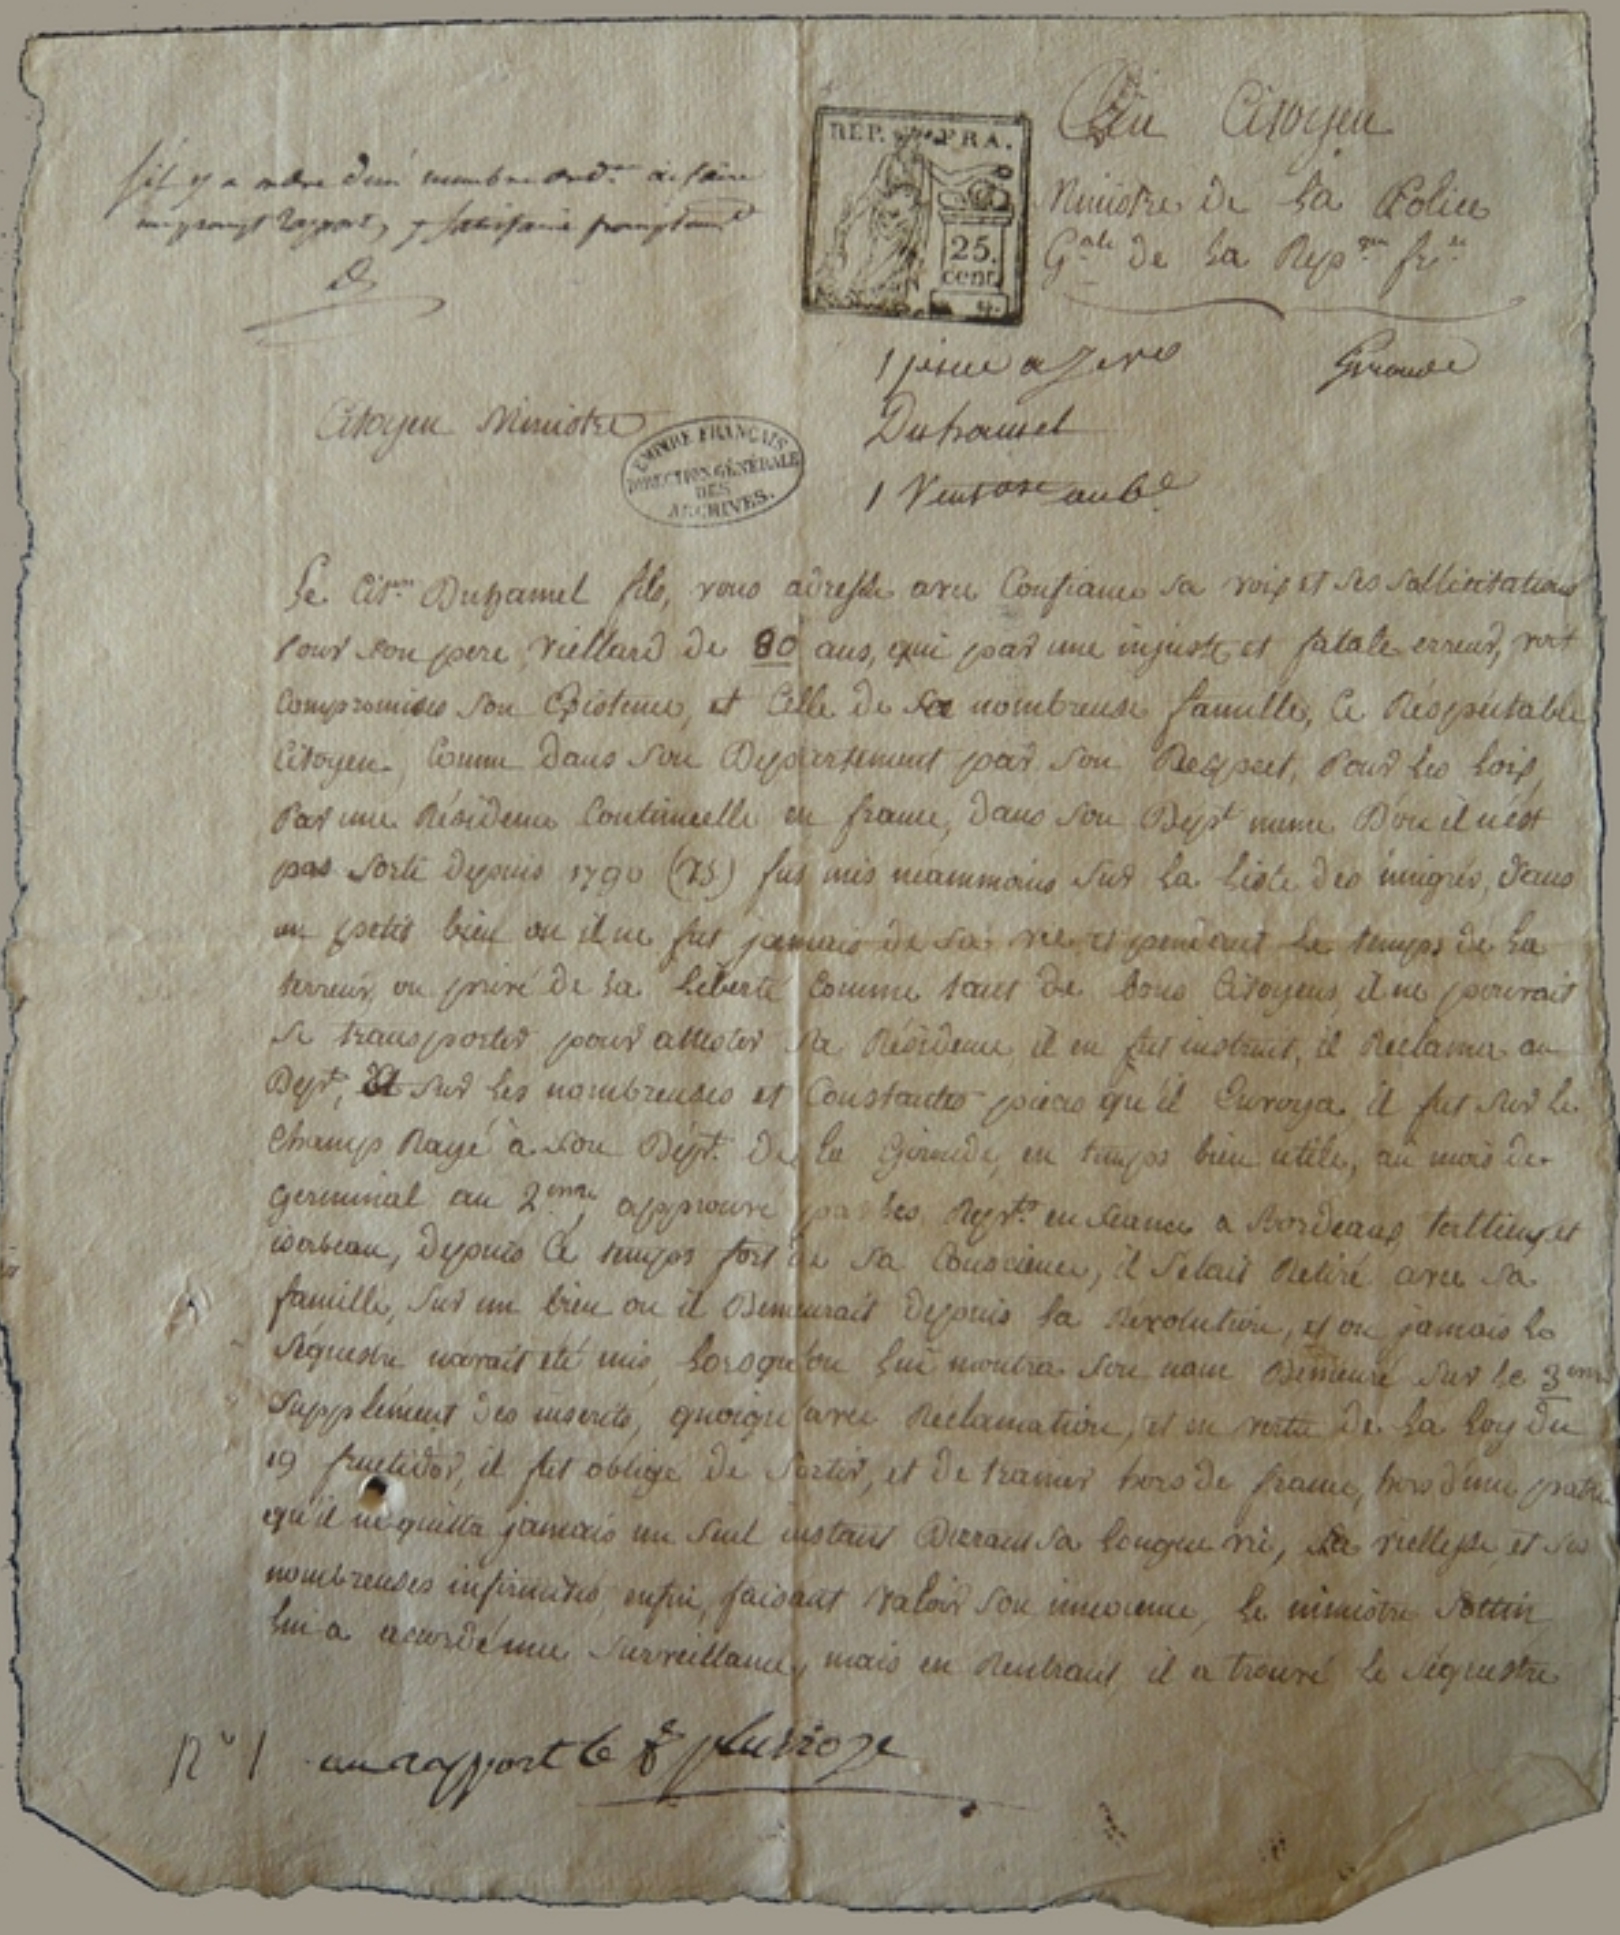 s'il y a ordre d'un membre à faire
un prompt rapport, y satisfaire promptemt
REP. FRA.
25.
cent.
Au Citoyen
Ministre de la Police
Gale de la Repque fse
1 piece a Gironde
Duhamel
1 Ventose an 6e
Citoyen Ministre
EMPIRE FRANÇAIS
DIRECTION GÉNÉRALE
DES
ARCHIVES.
Le Citen Duhamel fils, vous adresse avec Confiance sa voix et ses sollicitations
Pour son pere, viellard de 80 ans, qui par une injuste et fatale erreur, voit
Compromises son Existence, et Celle de sa nombreuse famille, Ce Réspectable
Citoyen, Connu dans son Département par son Respect, Pour les loix,
Par une Résidence Continuelle en france, dans son Dept meme D'ou il n'est
pas sorti depuis 1790 (VS) fut mis néammoins sur la liste des émigrés, dans
un petit bien ou il ne fut jamais de sa vie et pendant le temps de la
terreur, ou privé de la Liberté Comme tant de bons Citoyens, il ne pouvait
se transporter pour attester sa Résidence, il en fut instruit, il Reclama au
Dept, Et sur les nombreuses et Constantes pieces qu'il Envoya, il fut sur le
Champ Rayé à son Dépt. De la Gironde, en temps bien utile, au mois de
Germinal an 2eme, approuvé par les Repts en séance a Bordeaux tallien et
isabeau, depuis Ce temps fort de sa Conscience, il s'etait Retiré avec sa
famille, sur un bien ou il Demeurait depuis la Revolution, et ou jamais le
Séquestre n'avait été mis, Lorsqu'on lui montra son nom Demeuré sur le 3eme
Supplément des inscrits, quoiqu'avec Réclamation, et en vertu de la Loy du
19 fructidor, il fut obligé de sortir, et de trainer hors de france, hors d'une patrie
qu'il ne quitta jamais un seul instant Durant sa longue vie, sa viellesse, et ses
nombreuses infirmités, enfin, faisant valoir son innocence, le ministre Sottin
lui a accordé une surveillance, mais en Rentrant, il a trouvé le Séquestre
N° 1 au rapport le 8 pluviose